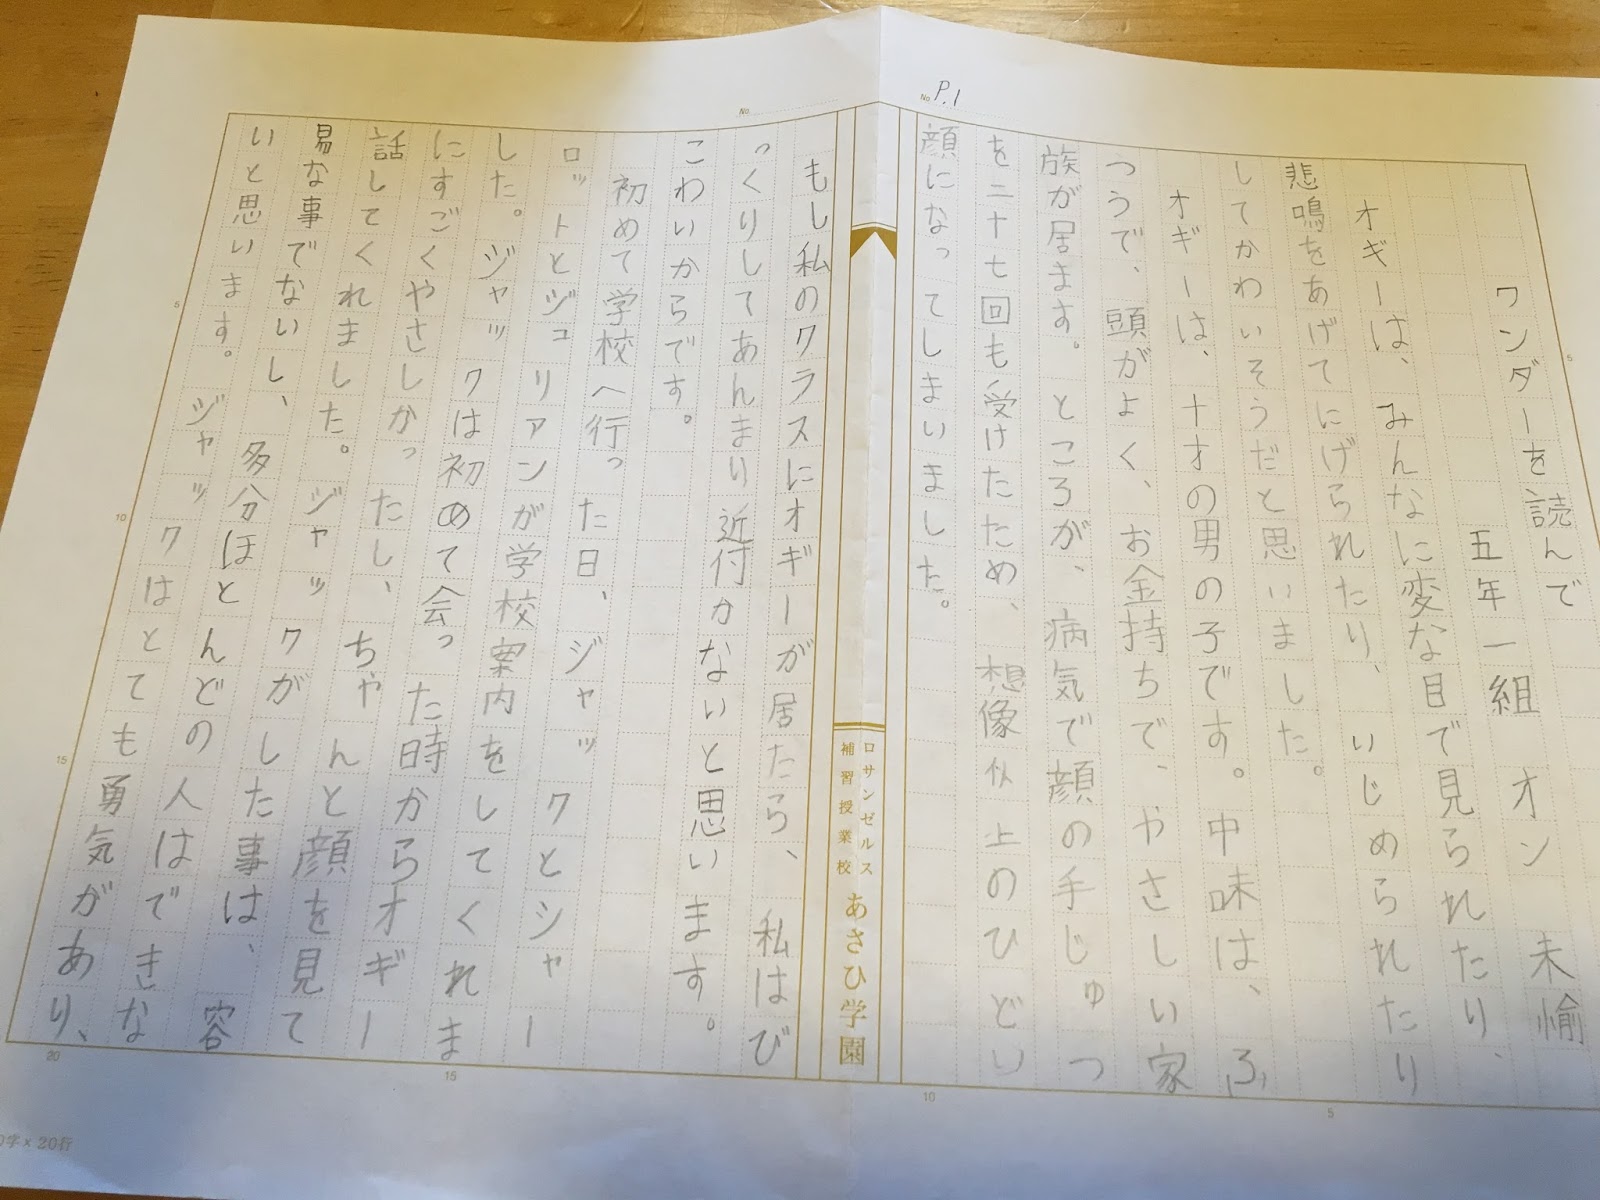 P.1
ワンダーを読んで
五年一組 オン 未愉
オギーは、みんなに変な目で見られたり、
悲鳴をあげてにげられたり、いじめられたり
してかわいそうだと思いました。
オギーは、十才の男の子です。中味は、ふ
つうで、頭がよく、お金持ちで、やさしい家
族が居ます。ところが、病気で顔の手じゅつ
を二十七回も受けたため、想像似上のひどい
顔になってしまいました。
もし私のクラスにオギーが居たら、私はび
っくりしてあんまり近付かないと思います。
こわいからです。
初めて学校へ行った日、ジャックとシャー
ロットとジュリアンが学校案内をしてくれま
した。ジャックは初めて会った時からオギー
にすごくやさしかったし、ちゃんと顔を見て
話してくれました。ジャックがした事は、容
易な事でないし、多分ほとんどの人はできな
いと思います。ジャックはとても勇気があり、
ロサンゼルス
補習授業校
あさひ学園
No
No
5
10
15
20
5
10
15
字×20行